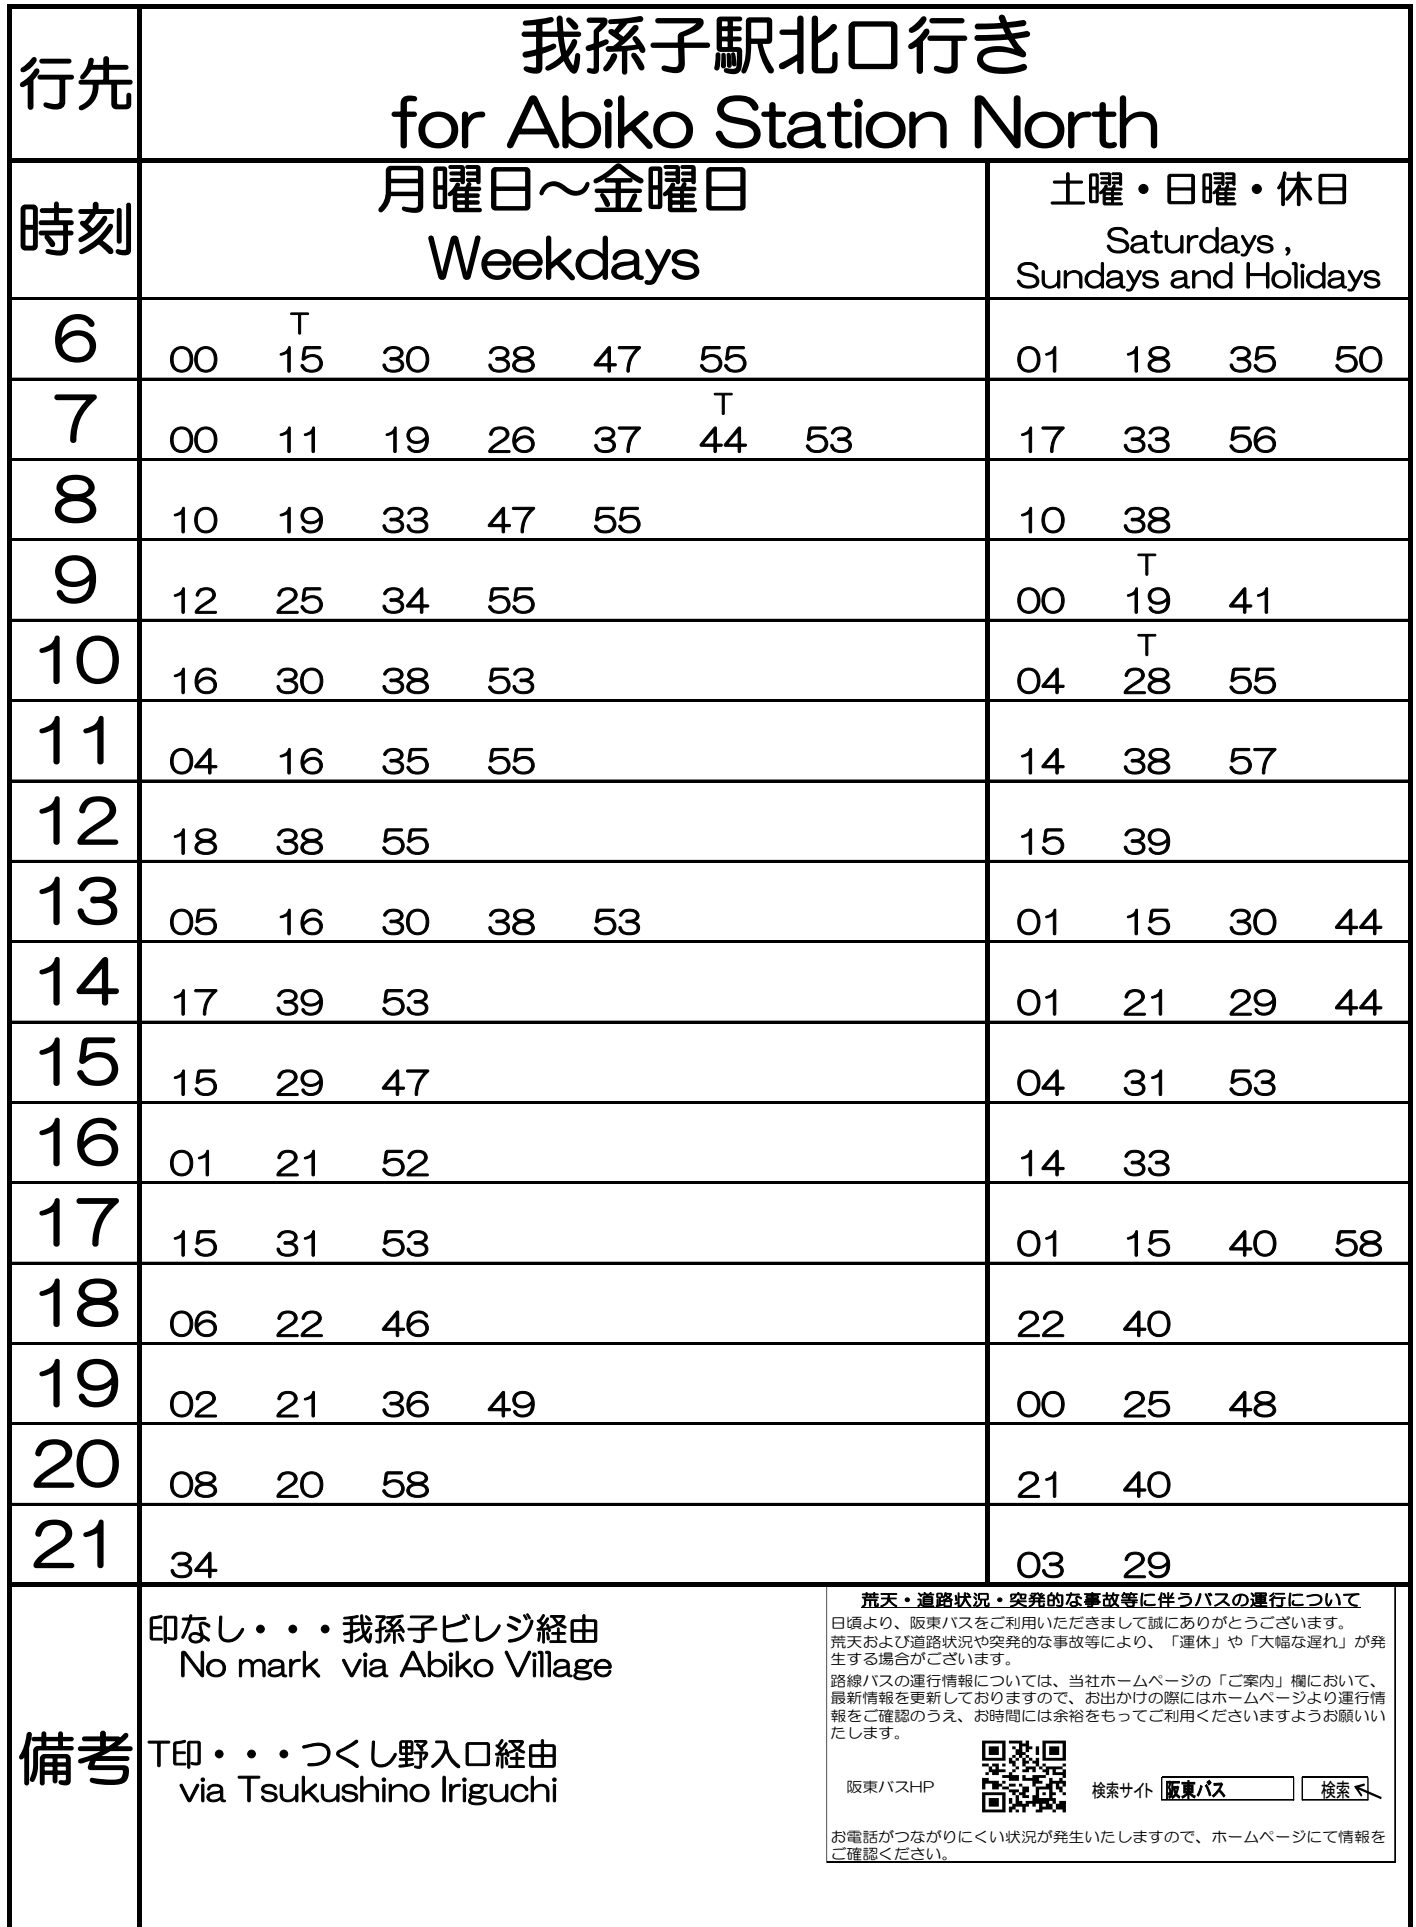 行先
我孫子駅北口行き
for Abiko Station North
時刻
月曜日～金曜日
Weekdays
土曜・日曜・休日
Saturdays ,
Sundays and Holidays
T
6 00 15 30 38 47 55 01 18 35 50
T
7 00 11 19 26 37 44 53 17 33 56
8 10 19 33 47 55 10 38
T
9 12 25 34 55 00 19 41
T
10 16 30 38 53 04 28 55
11 04 16 35 55 14 38 57
12 18 38 55 15 39
13 05 16 30 38 53 01 15 30 44
14 17 39 53 01 21 29 44
15 15 29 47 04 31 53
16 01 21 52 14 33
17 15 31 53 01 15 40 58
18 06 22 46 22 40
19 02 21 36 49 00 25 48
20 08 20 58 21 40
21 34 03 29
備考
印なし・・・我孫子ビレジ経由
No mark via Abiko Village
T印・・・つくし野入口経由
via Tsukushino Iriguchi
荒天・道路状況・突発的な事故等に伴うバスの運行について
日頃より、阪東バスをご利用いただきまして誠にありがとうございます。
荒天および道路状況や突発的な事故等により、「運休」や「大幅な遅れ」が発
生する場合がございます。
路線バスの運行情報については、当社ホームページの「ご案内」欄において、
最新情報を更新しておりますので、お出かけの際にはホームページより運行情
報をご確認のうえ、お時間には余裕をもってご利用くださいますようお願いい
たします。
阪東バスHP
検索サイト 阪東バス 検索
お電話がつながりにくい状況が発生いたしますので、ホームページにて情報を
ご確認ください。